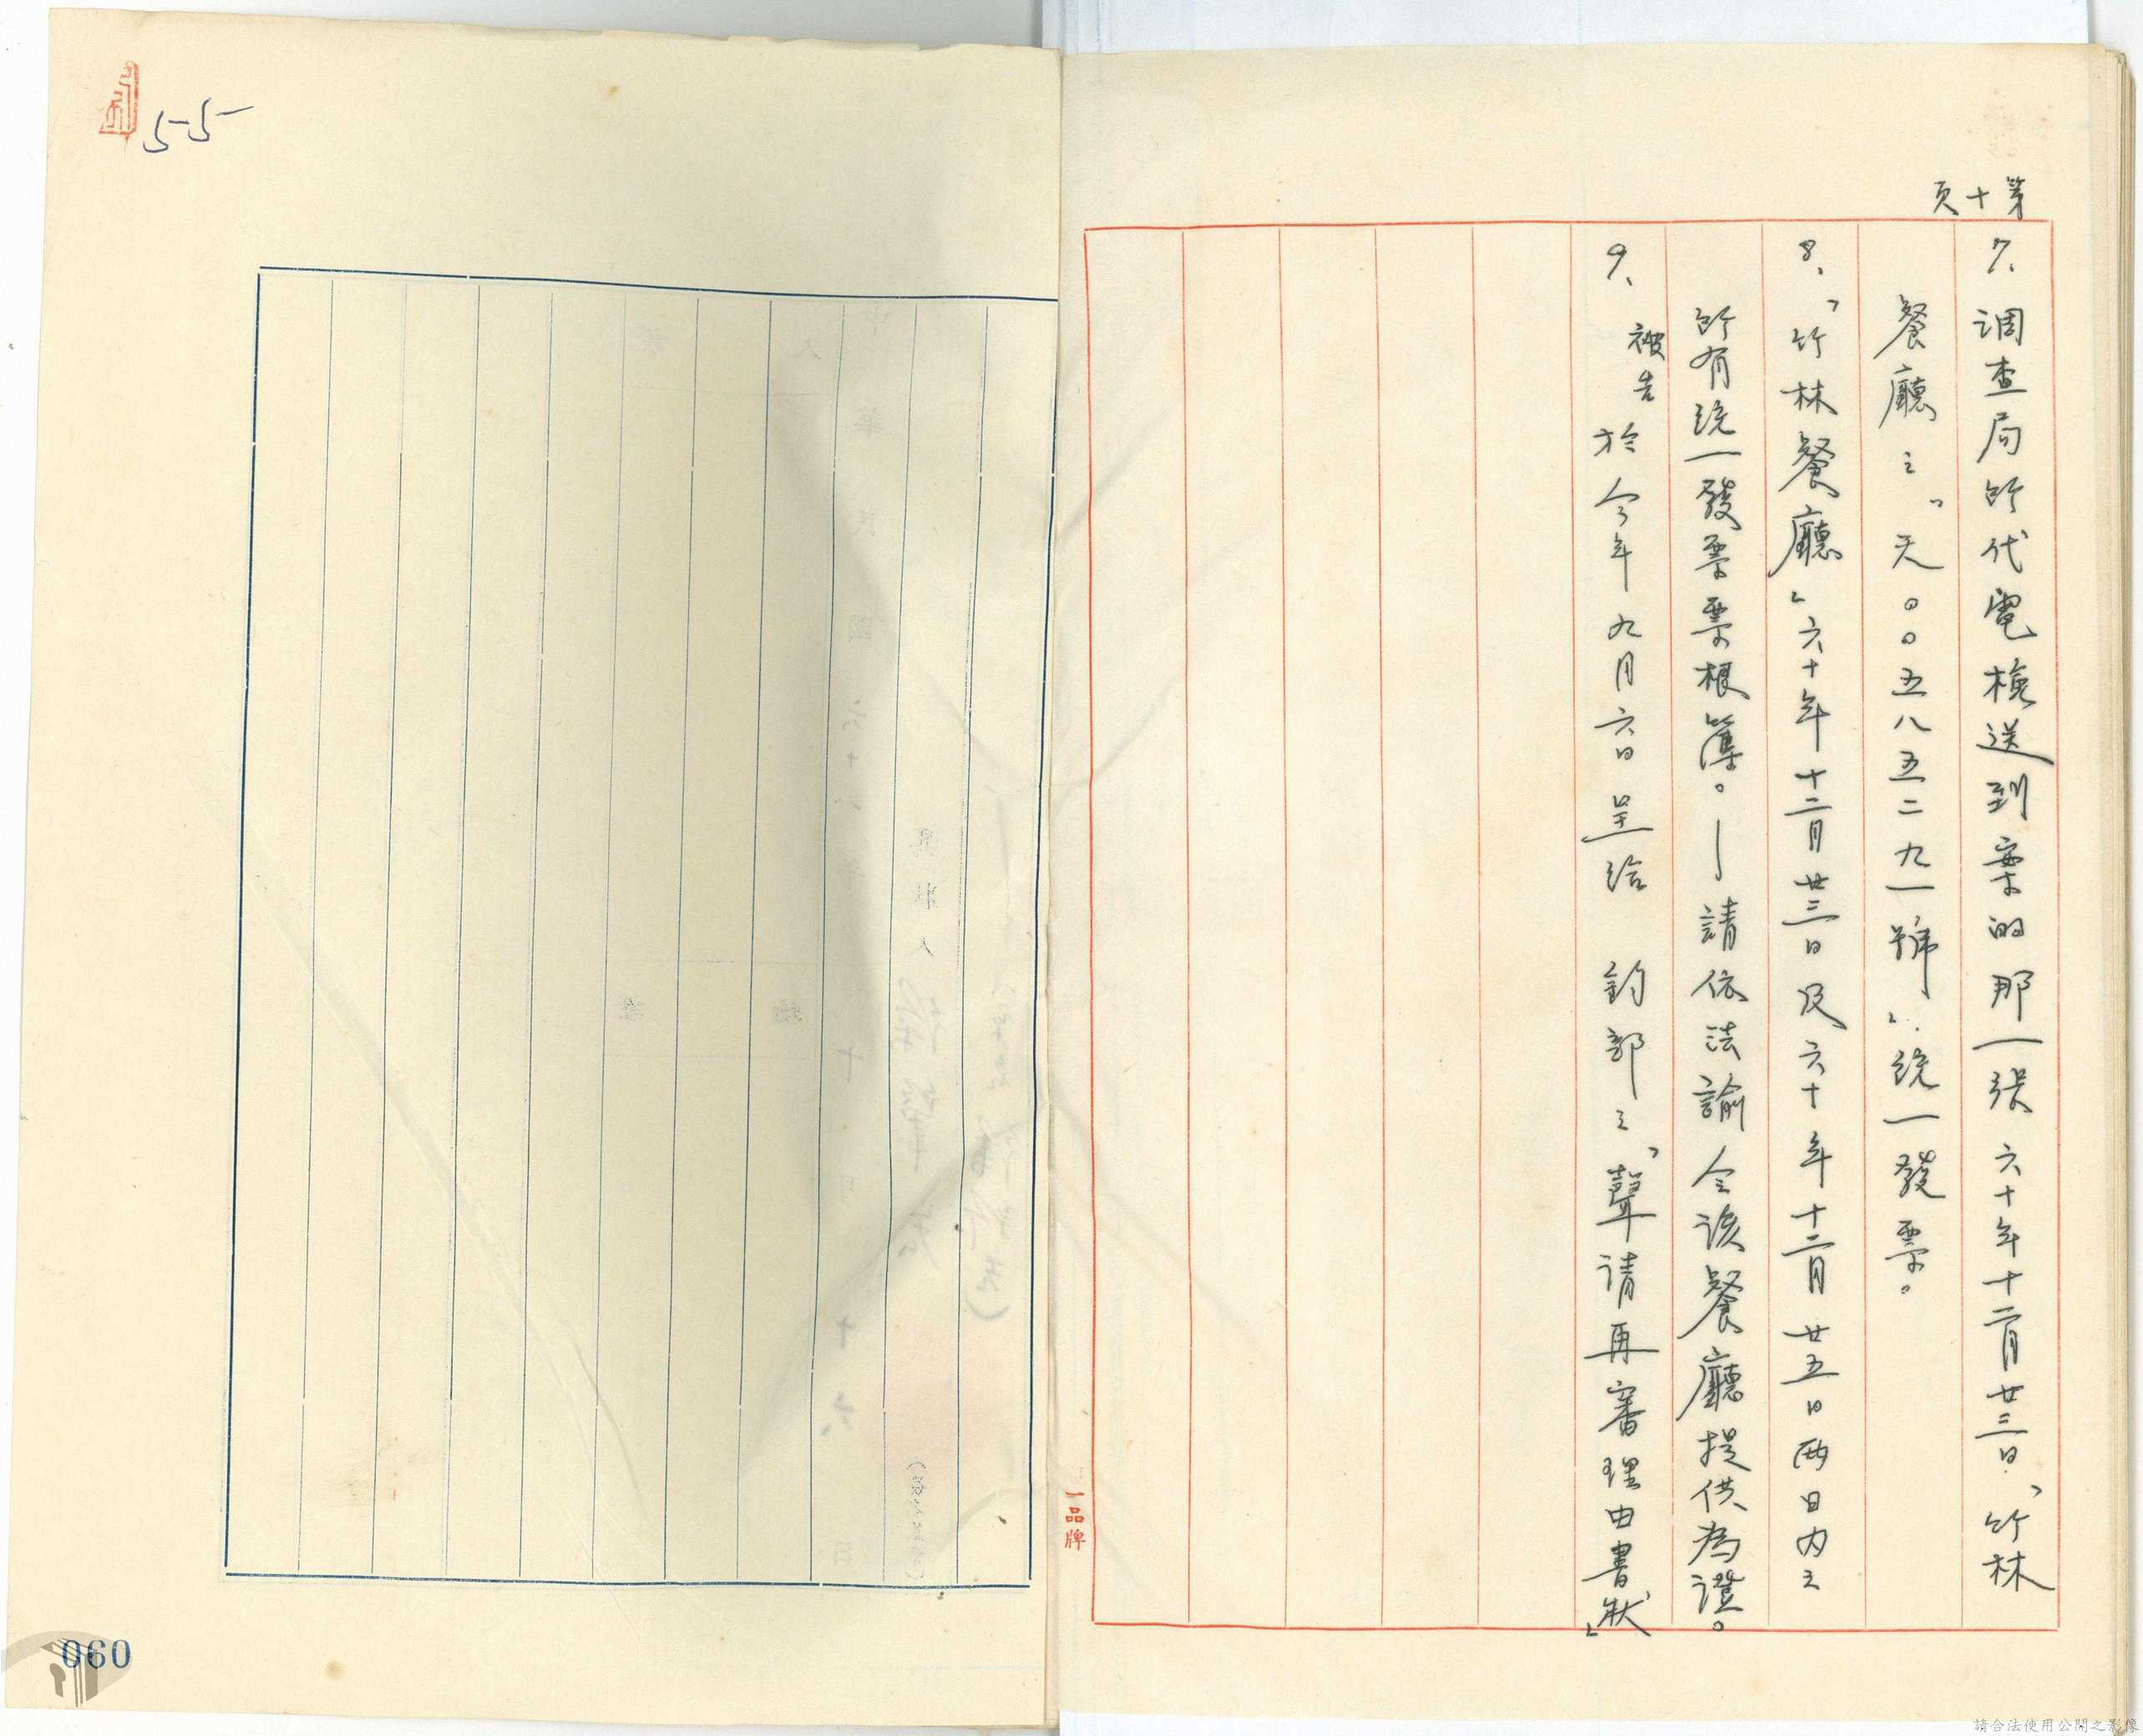 第十頁
7、调查局所代電檢送到案的那一張六十年十二月廿三日「竹林
餐廳之「天○○五八五二九一號」統一發票。
8、「竹林餐廳」六十年十二月廿三日及六十年十二月廿五日两日内之
所有統一發票票根簿。—請依法諭令该餐廳提供為證。
9、被告於今年九月六日呈给 鈞部之「聲请再審理由書狀」
一品牌
55
060
請合法使用公開之影像